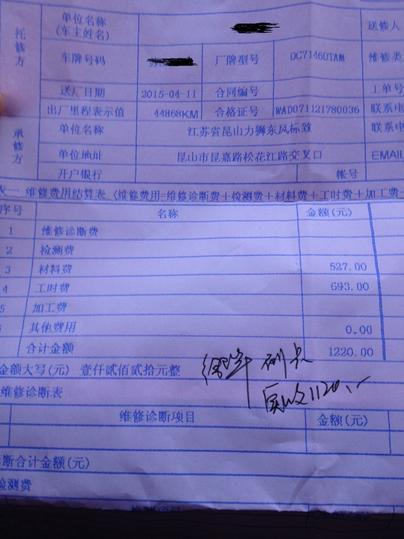 托修方 单位名称(车主姓名) 送修人
车牌号码 厂牌型号 DC7146DTAM 维修类
送厂日期 2015-04-11 合同编号 工单号
出厂里程表示值 44868KM 合格证号 WAD071121780036 联系电
承修方 单位名称 江苏省昆山力狮东风标致 联系电
单位地址 昆山市昆嘉路松花江路交叉口 EMAIL
开户银行 帐号
表一 维修费用结算表 (维修费用=维修诊断费+检测费+材料费+工时费+加工费+
序号 名称 金额(元)
1 维修诊断费
2 检测费
3 材料费 527.00
4 工时费 693.00
5 加工费
6 其他费用 0.00
合计金额 1220.00
金额大写(元) 壹仟贰佰贰拾元整
实收1120.
维修诊断表
维修诊断项目 金额(元)
断合计金额(元)
检测费